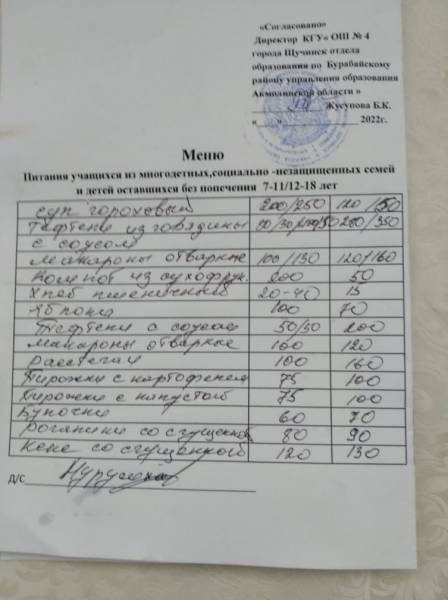 «Согласовано»
Директор КГУ« ОШ № 4
города Щучинск отдела
образования по Бурабайскому
району управления образования
Акмолинской области »
Жусупова Б.К.
«___»____________2022г.
Меню
Питания учащихся из многодетных,социально -незащищенных семей
и детей оставшихся без попечения 7-11/12-18 лет
Суп гороховый 200/250 120 / 150
Тефтели из говядины
с соусом
Макароны отварные 100/130 120/160
Компот из сухофрук. 200 50
Хлеб пшеничный 20-40 15
Яблоки 100 70
Тефтели с соусом 50/50 200
Макароны отварные 100 120
Расстегаи 100 160
Пирожки с картофелем 75 100
Пирожки с капустой 75 100
Булочки 60 70
Рогалики со сгущенкой 80 90
Кекс со сгущенкой 120 130
Д/С